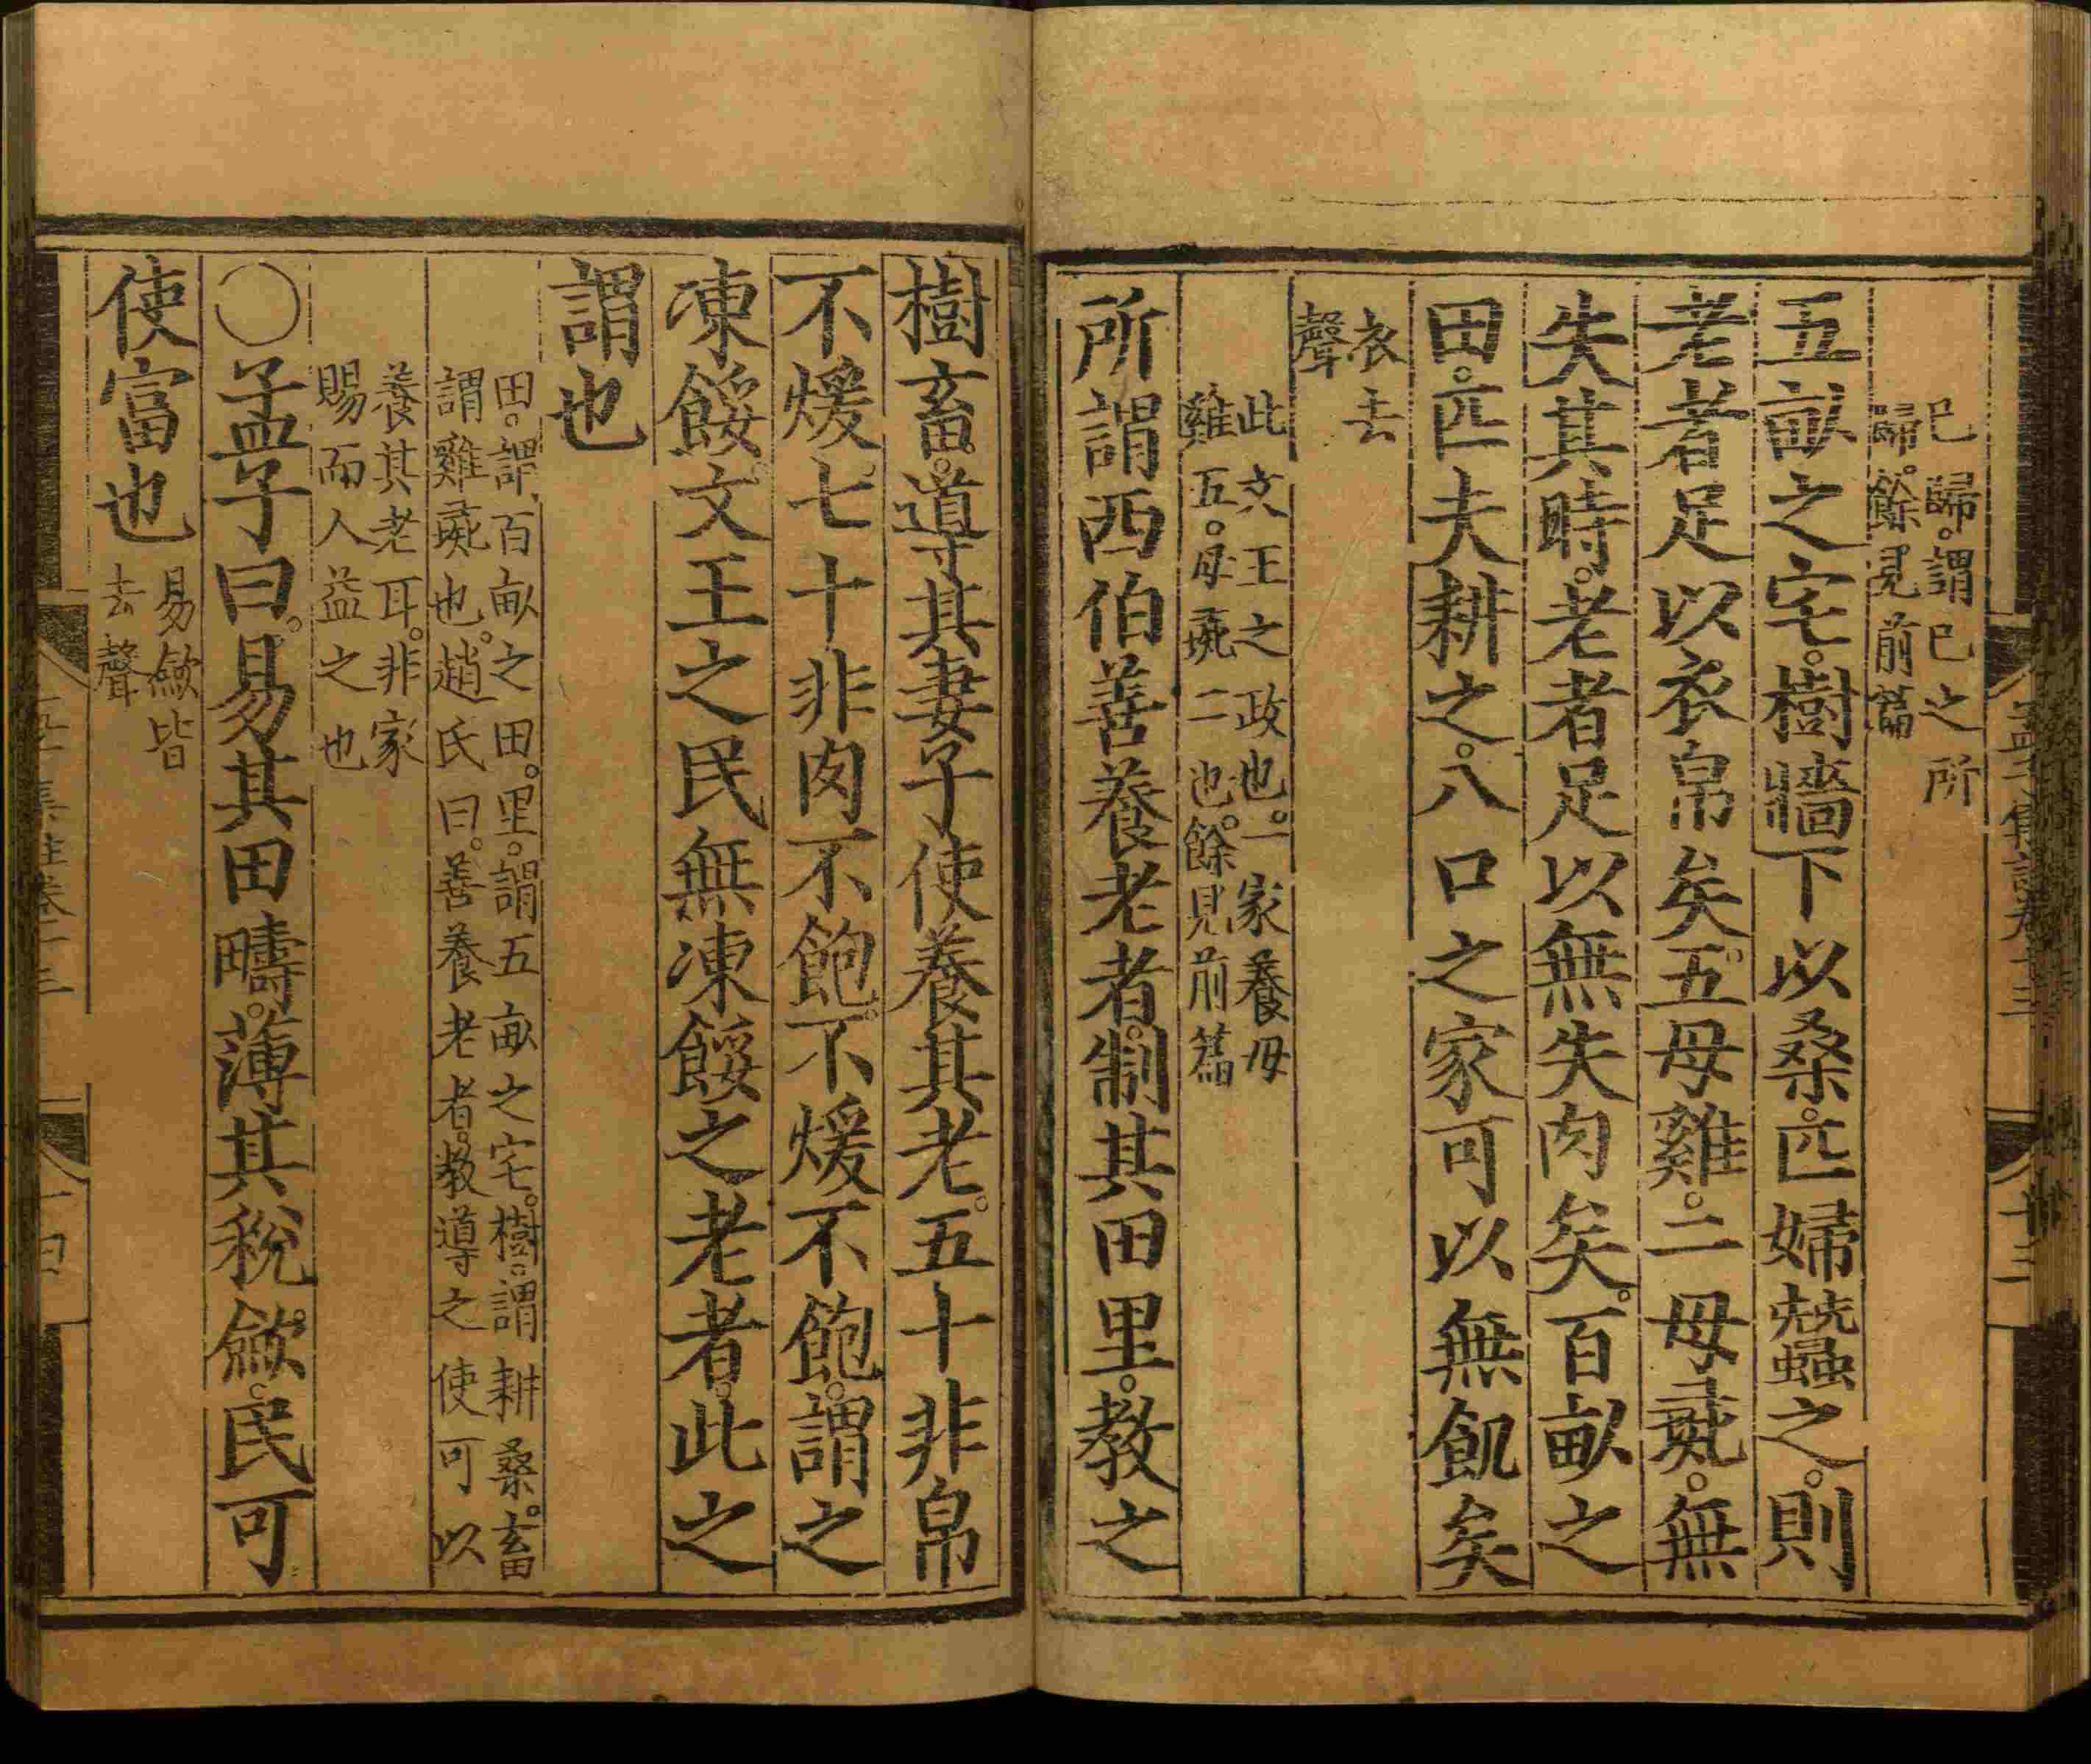 己歸。謂己之所
歸。餘見前篇
五畝之宅。樹牆下以桑。匹婦蠶之。則
老者足以衣帛矣。五母雞。二母彘。無
失其時。老者足以無失肉矣。百畝之
田。匹夫耕之。八口之家可以無飢矣
衣去
聲
此文王之政也。一家養母
雞五。母彘二也。餘見前篇
所謂西伯善養老者。制其田里。教之
樹畜。導其妻子使養其老。五十非帛
不煖。七十非肉不飽。不煖不飽。謂之
凍餒。文王之民無凍餒之老者。此之
謂也
田。謂百畝之田。里。謂五畝之宅。樹。謂耕桑。畜
謂雞彘也。趙氏曰。善養老者。教導之使可以
養其老耳。非家
賜而人益之也
○孟子曰。易其田疇。薄其稅斂。民可
使富也
易斂皆
去聲